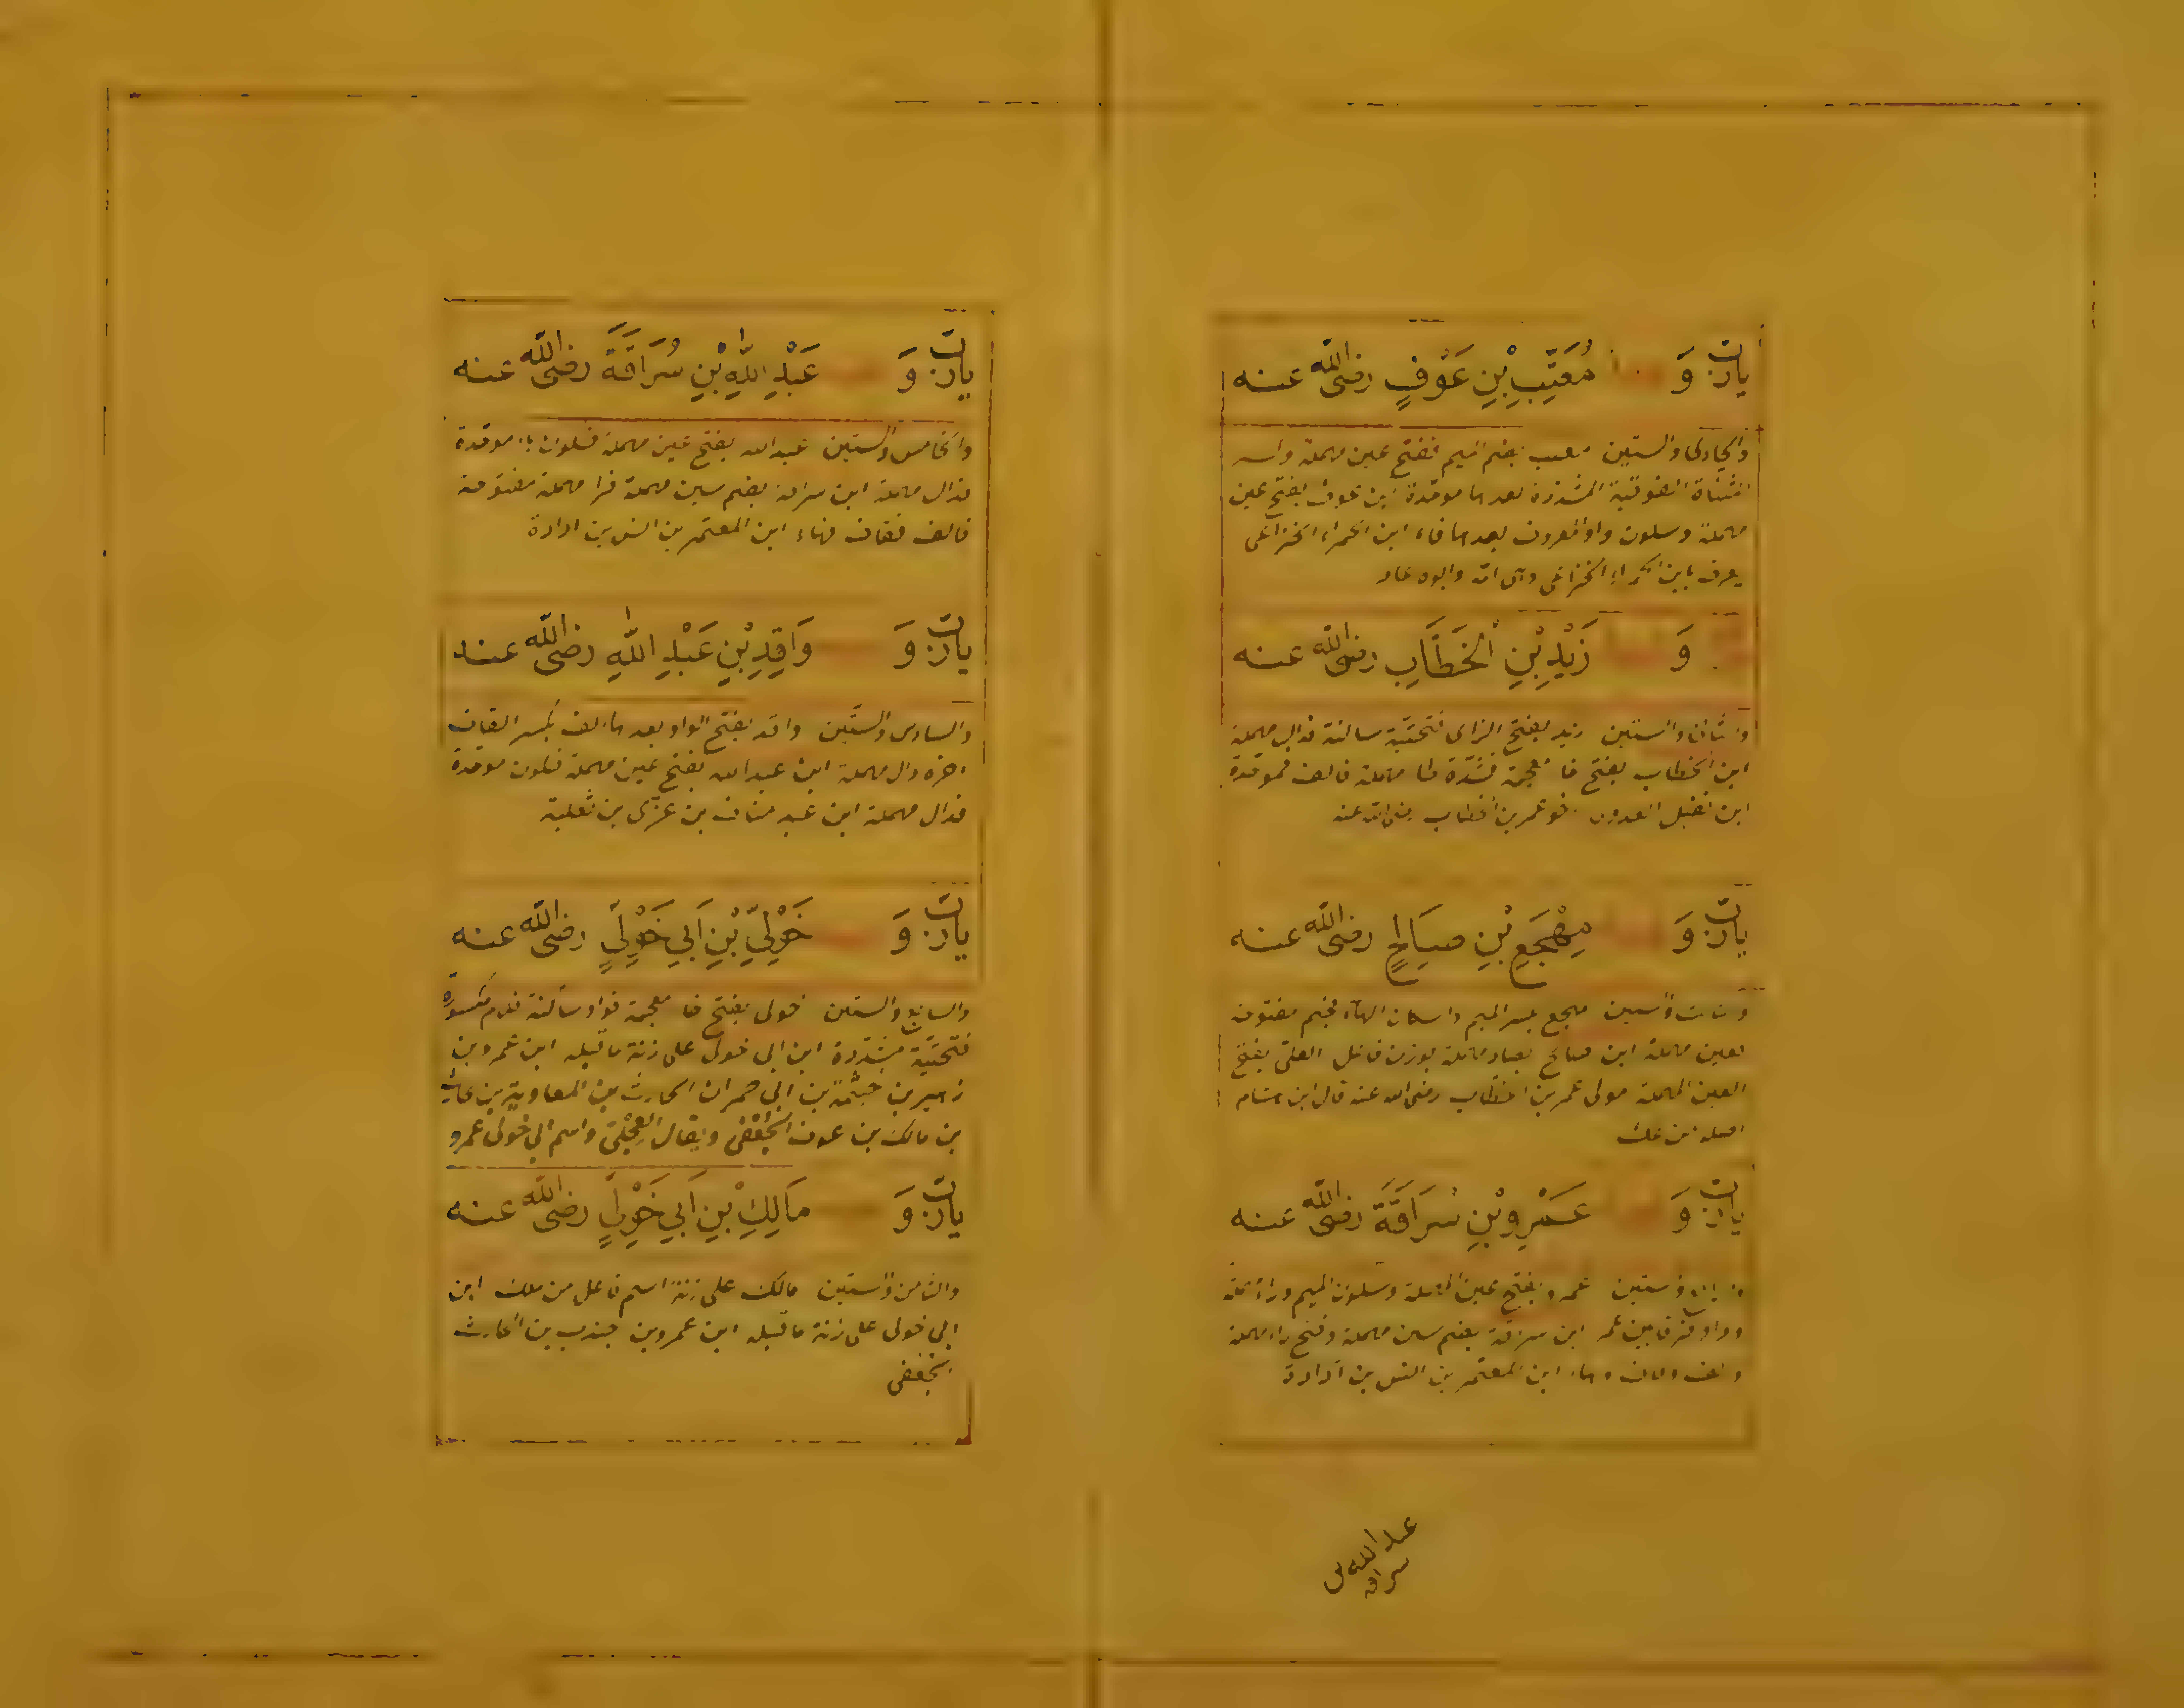 يا رب و معتب بن عوف رضى الله عنه
والحادى والستين معتب بضم الميم ففتح عين مهملة
المثناة الفوقية المشددة بعدها موحدة ابن عوف بفتح عين
مهملة وسكون واو المعروف بعدها فاء ابن الحمراء الخزاعى
يعرف بابن الحمراء الخزاعى
و زيد بن الخطاب رضى الله عنه
والثانى والستين زيد بفتح الزاى فتحتية ساكنة فدال مهملة
ابن الخطاب بفتح خا معجمة فشدة طا مهملة فالف فموحدة
ابن نفيل اخو عمر بن الخطاب رضى الله عنه
يا رب و مهجع بن صالح رضى الله عنه
والستين مهجع بكسر الميم واسكان الهاء فجيم مفتوحة
فعين مهملة ابن صالح بصاد مهملة بوزن فاعل العكى بفتح
العين المهملة مولى عمر بن الخطاب رضى الله عنه قال ابن هشام
اصله من عك
يا رب و عمرو بن سراقة رضى الله عنه
والستين عمرو بفتح عين مهملة وسكون الميم وراء
وواو فرقا بين عمر ابن سراقة بضم سين مهملة وفتح راء مهملة
والف وقاف وهاء ابن المعتمر بن انس بن اداة
عبد الله بن
سراقه
يا رب و عبد الله بن سراقة رضى الله عنه
والخامس والستين عبد الله بفتح عين مهملة فسكون باء موحدة
فدال مهملة ابن سراقة بضم سين مهملة فرا مهملة مفتوحة
فالف فقاف فهاء ابن المعتمر بن انس بن اداة
يا رب و واقد بن عبد الله رضى الله عنه
والسادس والستين واقد بفتح الواو بعدها الف بكسر القاف
اخره دال مهملة ابن عبد الله بفتح عين مهملة فسكون موحدة
فدال مهملة ابن عبد مناف بن عزى بن ثعلبة
يا رب و خولى بن ابى خولى رضى الله عنه
والسابع والستين خولى بفتح خا معجمة فواو ساكنة فلام مكسورة
فتحتية مشددة ابن ابى خولى على زنة ما قبله ابن عمرو بن
زهير بن خيثمة بن ابى حمران الحارث بن المعاوية بن حارث
بن مالك بن عوف الجعفى ويقال العجلى واسم ابى خولى عمرو
يا رب و مالك بن ابى خولى رضى الله عنه
والثامن والستين مالك على زنة اسم فاعل من ملك ابن
ابى خولى على زنة ما قبله ابن عمرو بن جندب بن الحارث
الجعفى